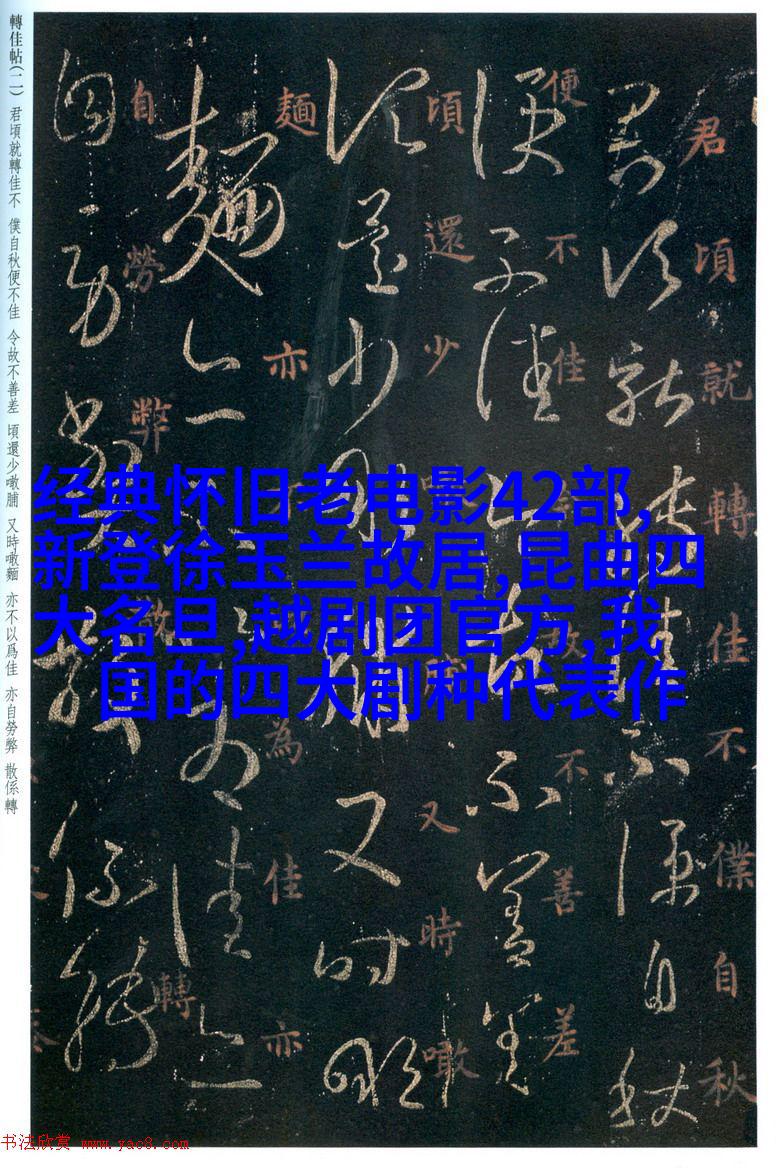 轉佳帖(二) 君頃就轉佳不 僕自秋便不佳 令故不善差 頃還少噉脯 又時噉麵 亦不以爲佳 亦自勞弊 散係轉
君頃就轉佳不僕自秋
便不佳今故不善差
頃還少噉脯又時噉
麵亦不以為佳亦
自勞弊散係轉
经典怀旧老电影42部,
新登徐玉兰故居,昆曲四
大名旦,越剧团官方,我
国的四大剧种代表作
书法欣赏 www.yac8.com